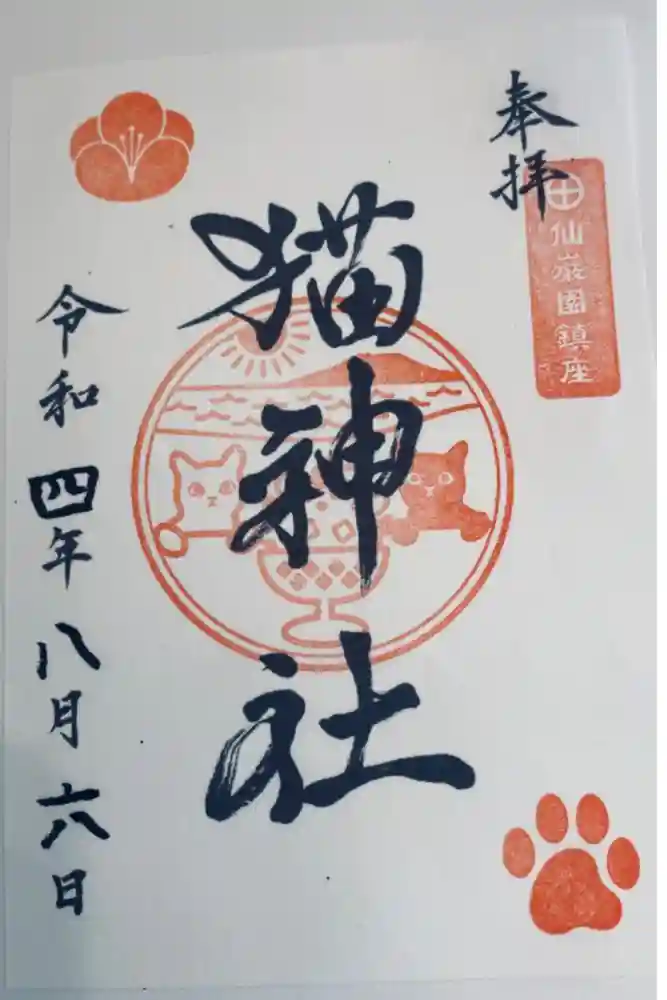 奉拝
仙巌園鎮座
猫神社
令和四年八月六日